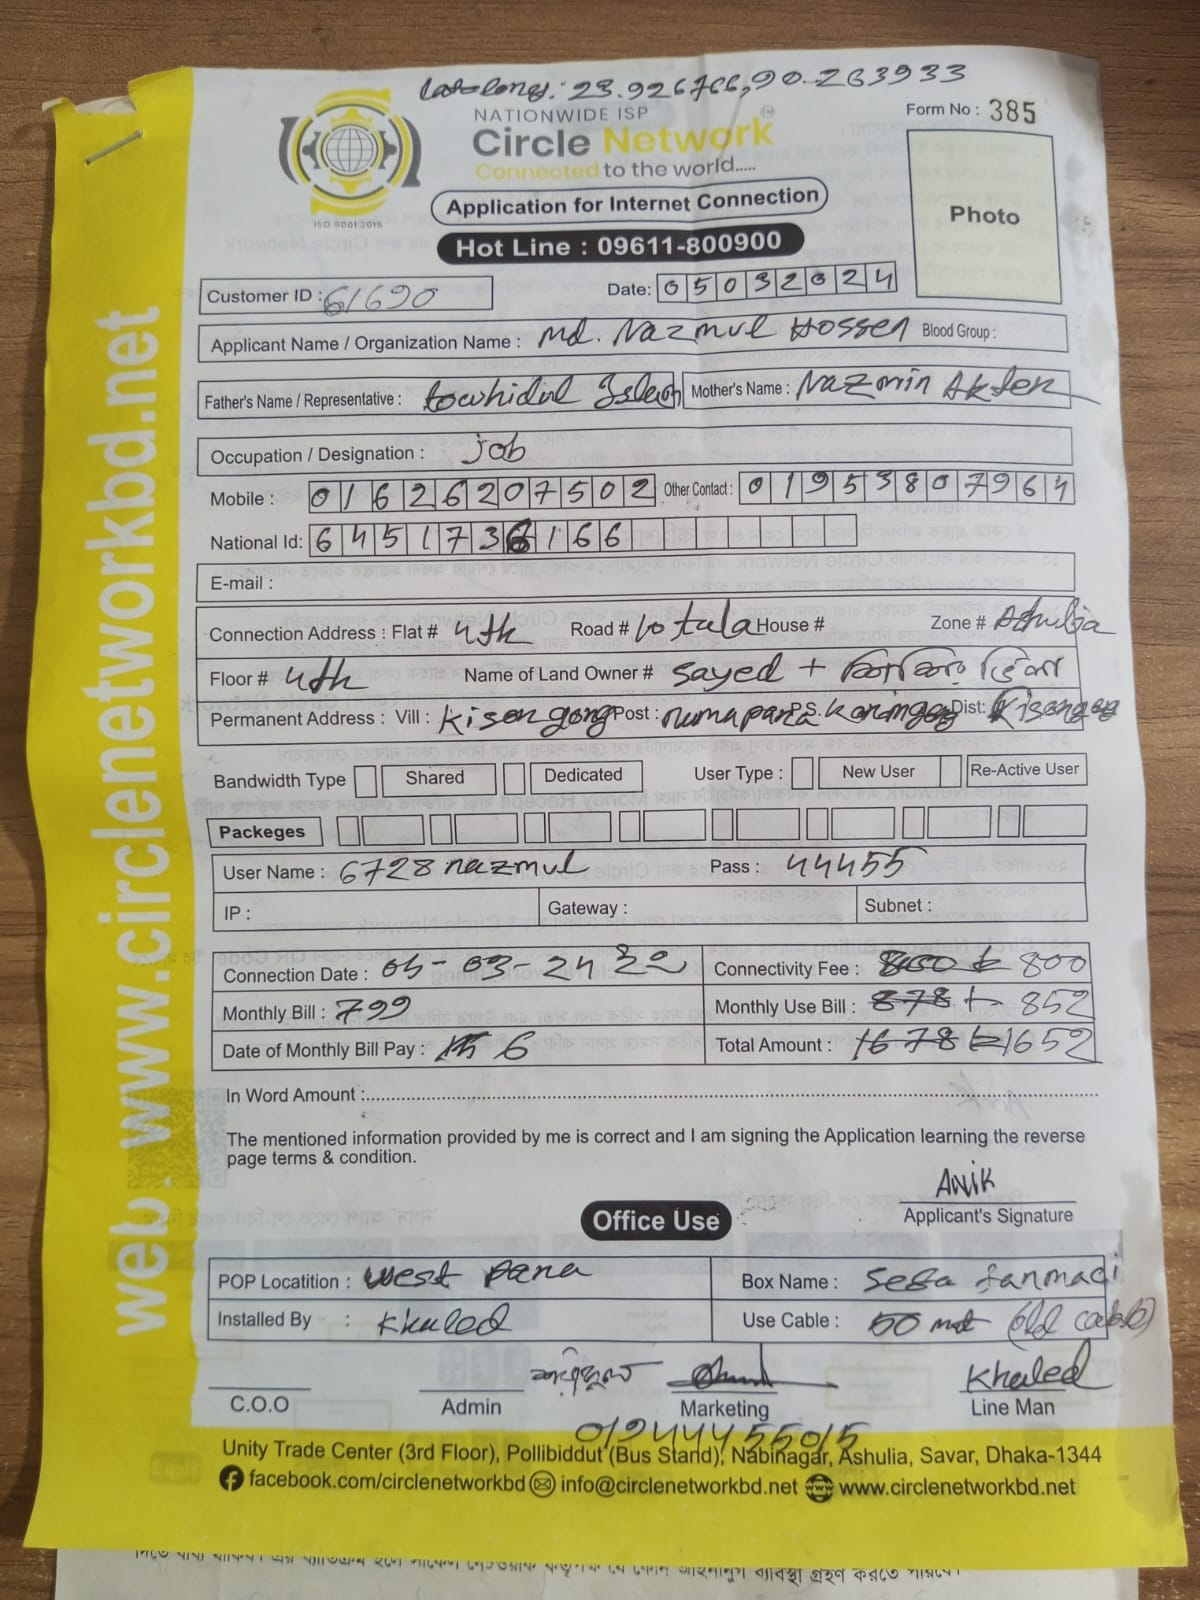 Lat-long: 23.926766, 90.263933
NATIONWIDE ISP
Circle Network
Connected to the world.....
ISO 9001:2015
Form No : 385
Photo
Application for Internet Connection
Hot Line : 09611-800900
Customer ID : 61690
Date: 05032024
Applicant Name / Organization Name : Md. Nazmul Hossen Blood Group :
Father's Name / Representative : towhidul Islam Mother's Name : Nazmin Akter
Occupation / Designation : job
Mobile : 01626207502 Other Contact : 01953807964
National Id: 6451736166
E-mail :
Connection Address : Flat # 4th Road # 10 tala House # Zone # Ashulia
Floor # 4th Name of Land Owner # Sayed +
Permanent Address : Vill : Kisorgong Post : numapara P.S. Karimgog Dist: Kisorgog
Bandwidth Type Shared Dedicated User Type : New User Re-Active User
Packeges
User Name : 6728nazmul Pass : 44455
IP : Gateway : Subnet :
Connection Date : 05-03-24 Connectivity Fee : 800
Monthly Bill : 799 Monthly Use Bill : 878 852
Date of Monthly Bill Pay : 6 Total Amount : 1678 1652
In Word Amount :
The mentioned information provided by me is correct and I am signing the Application learning the reverse
page terms & condition.
Anik
Applicant's Signature
Office Use
POP Locatition : west para Box Name : Seba farmaci
Installed By : Khaled Use Cable : 50 mt (old cable)
Khaled
C.O.O Admin Marketing Line Man
01944455015
Unity Trade Center (3rd Floor), Pollibiddut (Bus Stand), Nabinagar, Ashulia, Savar, Dhaka-1344
facebook.com/circlenetworkbd info@circlenetworkbd.net www.circlenetworkbd.net
web : www.circlenetworkbd.net